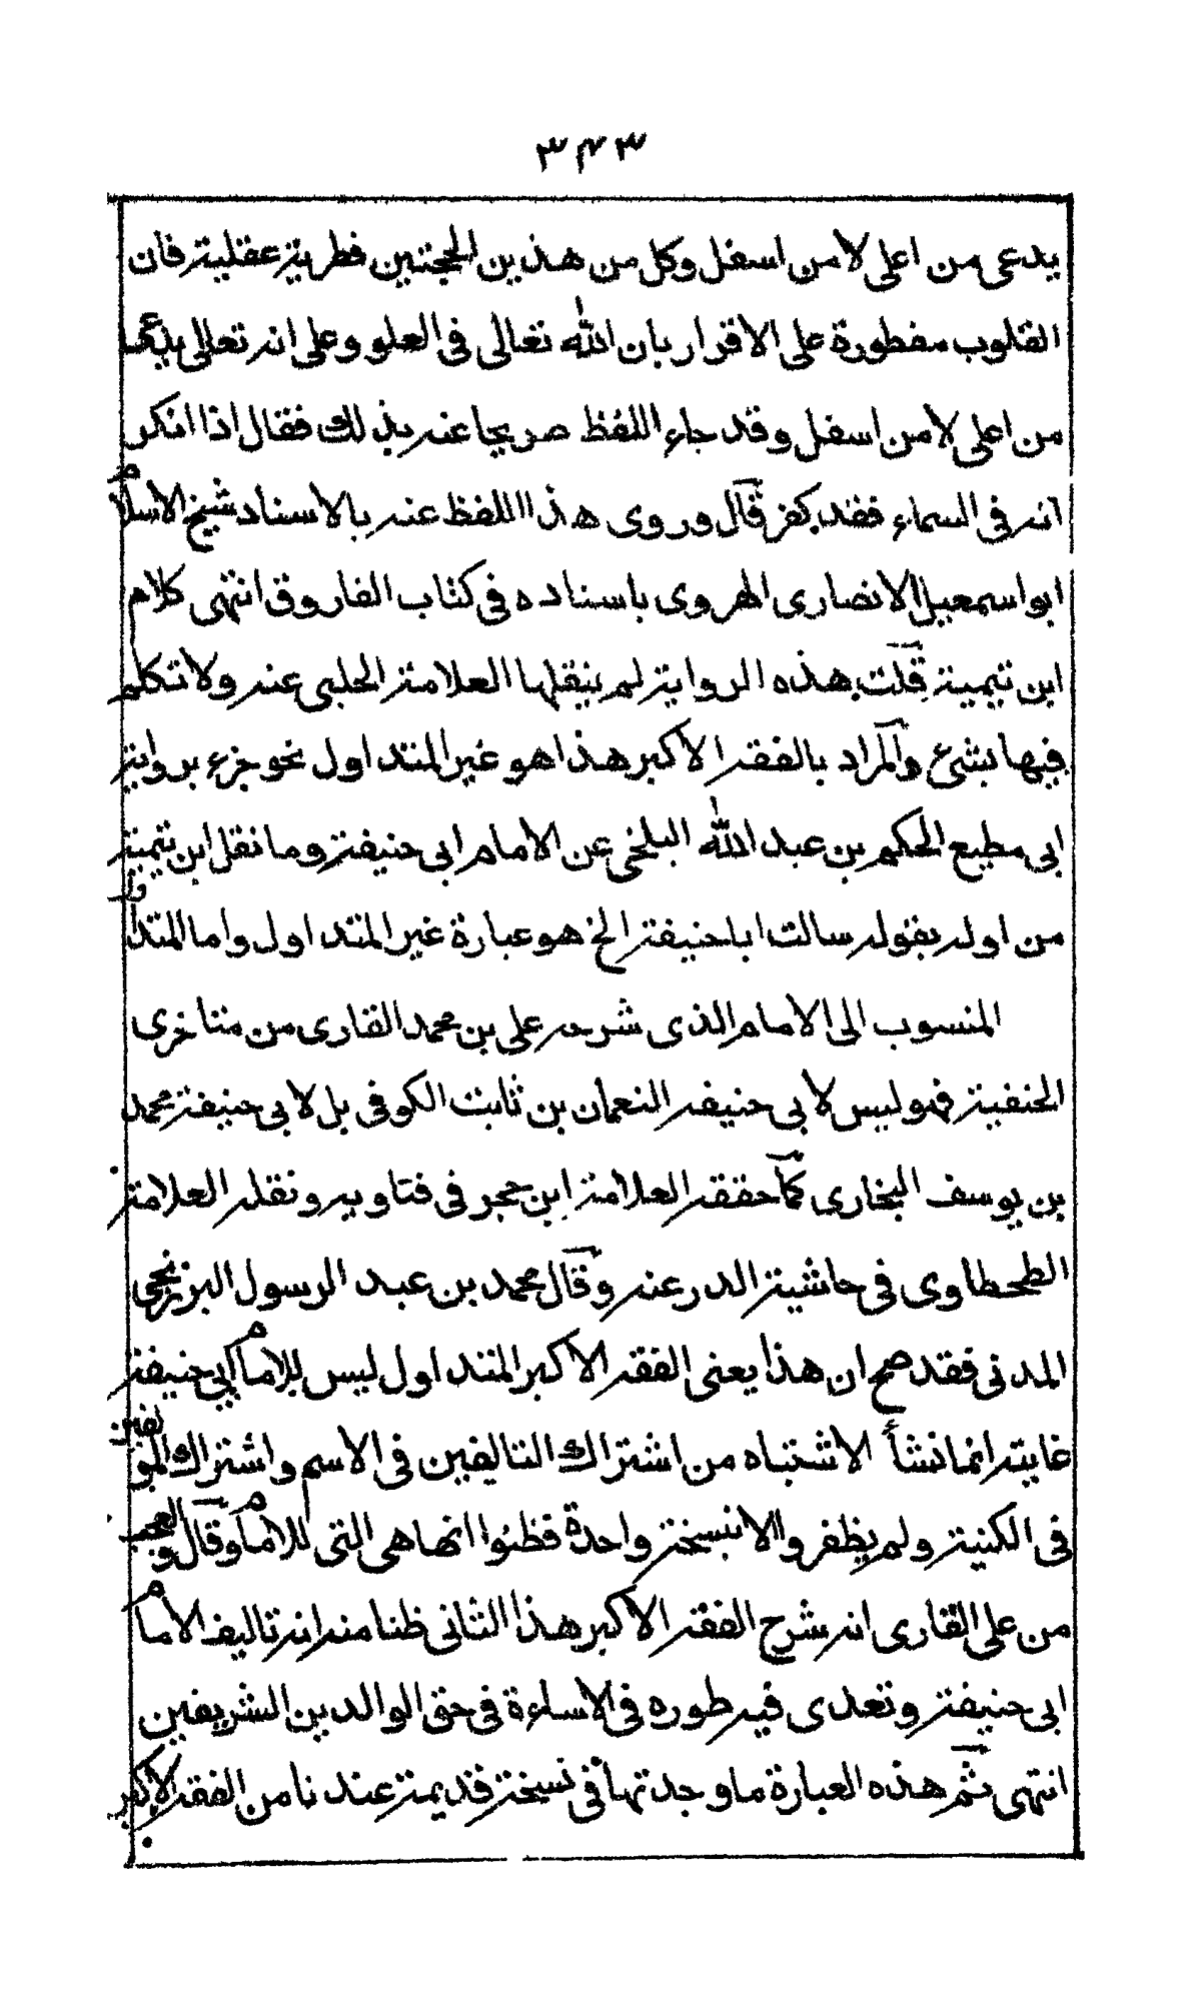 ٣٤٣
يدعى من اعلى لا من اسفل وكل من هذين الحجتين فطرية عقلية فان
القلوب مفطورة على الاقرار بان الله تعالى فى العلو وعلى انه تعالى يدعى
من اعلى لا من اسفل وقد جاء اللفظ صريحا عنه بذلك فقال اذا انكر
انه فى السماء فقد كفر قال وروى هذا اللفظ عنه بالاسناد شيخ الاسلام
ابو اسمعيل الانصارى الهروى باسناده فى كتاب الفاروق انتهى كلام
ابن تيمية قلت هذه الرواية لم ينقلها العلامة الحلبى عنه ولا تكلم
فيها بشئ والمراد بالفقه الاكبر هذا هو غير المتداول نحو جزء برواية
ابى مطيع الحكيم بن عبد الله البلخى عن الامام ابى حنيفة وما نقل ابن تيمية
من اوله بقوله سالت ابا حنيفة الخ هو عبارة غير المتداول واما المتداول
المنسوب الى الامام الذى شرحه على بن محمد القارى من متاخرى
الحنفية فهو ليس لابى حنيفه النعمان بن ثابت الكوفى بل لابى حنيفة محمد
بن يوسف البخارى كما حققه العلامة ابن حجر فى فتاويه ونقله العلامة
الطحطاوى فى حاشية الدر عنه وقال محمد بن عبد الرسول البرزنجى
المدنى فقد صح ان هذا يعنى الفقه الاكبر المتداول ليس للامام ابى حنيفة
غايته انما نشأ الاشتباه من اشتراك التاليفين فى الاسم واشتراك المؤلفين
فى الكنية ولم يظفروا الا بنسخة واحدة فظنوا انها هى التى للامام وقال والعجب
من على القارى انه شرح الفقه الاكبر هذا الثانى ظنا منه انه تاليف الامام
ابى حنيفة وتعدى فيه طوره فى الاساءة فى حق الوالدين الشريفين
انتهى ثم هذه العبارة ما وجدتها فى نسخة قديمة عندنا من الفقه الاكبر